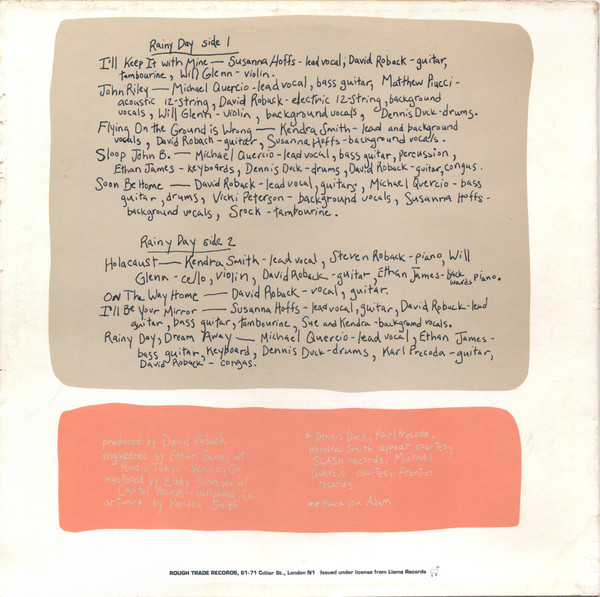 Rainy Day side 1
I'll Keep It with Mine — Susanna Hoffs - lead vocal, David Roback - guitar,
tambourine, Will Glenn - violin.
John Riley — Michael Quercio - lead vocal, bass guitar, Matthew Piucci -
acoustic 12-string, David Roback - electric 12-string, background
vocals, Will Glenn - violin, background vocals, Dennis Duck - drums.
Flying On the Ground is Wrong — Kendra Smith - lead and background
vocals, David Roback - guitar, Susanna Hoffs - background vocals.
Sloop John B. — Michael Quercio - lead vocal, bass guitar, percussion,
Ethan James - keyboards, Dennis Duck - drums, David Roback - guitar, congas.
Soon Be Home — David Roback - lead vocal, guitars, Michael Quercio - bass
guitar, drums, Vicki Peterson - background vocals, Susanna Hoffs -
background vocals, Spock - tambourine.
Rainy Day side 2
Holocaust — Kendra Smith - lead vocal, Steven Roback - piano, Will
Glenn - cello, violin, David Roback - guitar, Ethan James - backwards piano.
On The Way Home — David Roback - vocal, guitar.
I'll Be Your Mirror — Susanna Hoffs - lead vocal, guitar, David Roback - lead
guitar, bass guitar, tambourine, Sue and Kendra - background vocals.
Rainy Day, Dream Away — Michael Quercio - lead vocal, Ethan James -
bass guitar, keyboard, Dennis Duck - drums, Karl Precoda - guitar,
David Roback - congas.
produced by David Roback
engineered by Ethan James at
Radio Tokyo - Venice, CA
mastered by Eddy Schreyer at
Capitol Records - Hollywood, CA
artwork by Kendra Smith
* Dennis Duck, Karl Precoda,
Kendra Smith appear courtesy
SLASH records. Michael
Quercio courtesy Frontier
records.
** thank you Adam
ROUGH TRADE RECORDS, 61-71 Collier St., London N1 Issued under license from Llama Records